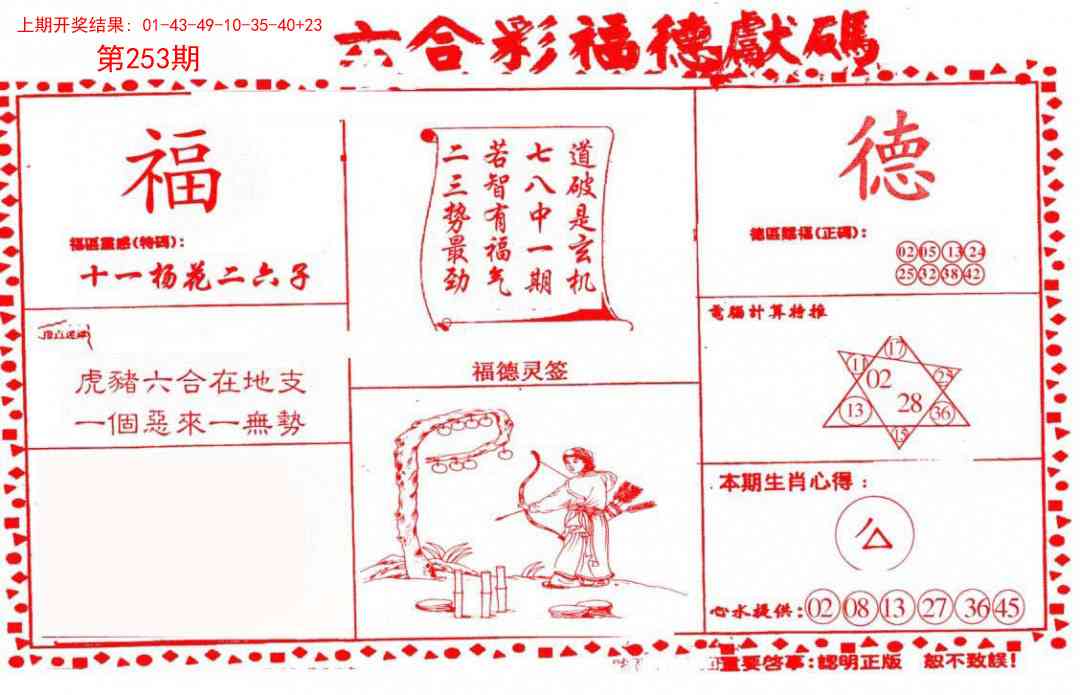 上期开奖结果：01-43-49-10-35-40+23
第253期
六合彩福德獻碼
福
福區靈感(特碼)：
十一杨花二六子
虎豬六合在地支
一個惡來一無勢
道破是玄机
七八中一期
若智有福气
二三势最劲
福德灵签
德
德區賜福(正碼)：
02 05 13 24
25 32 38 42
電腦計算特推
17
11 02 25
13 28 36
15
本期生肖心得：
心水提供：02 08 13 27 36 45
重要啓事：認明正版 恕不致誤！